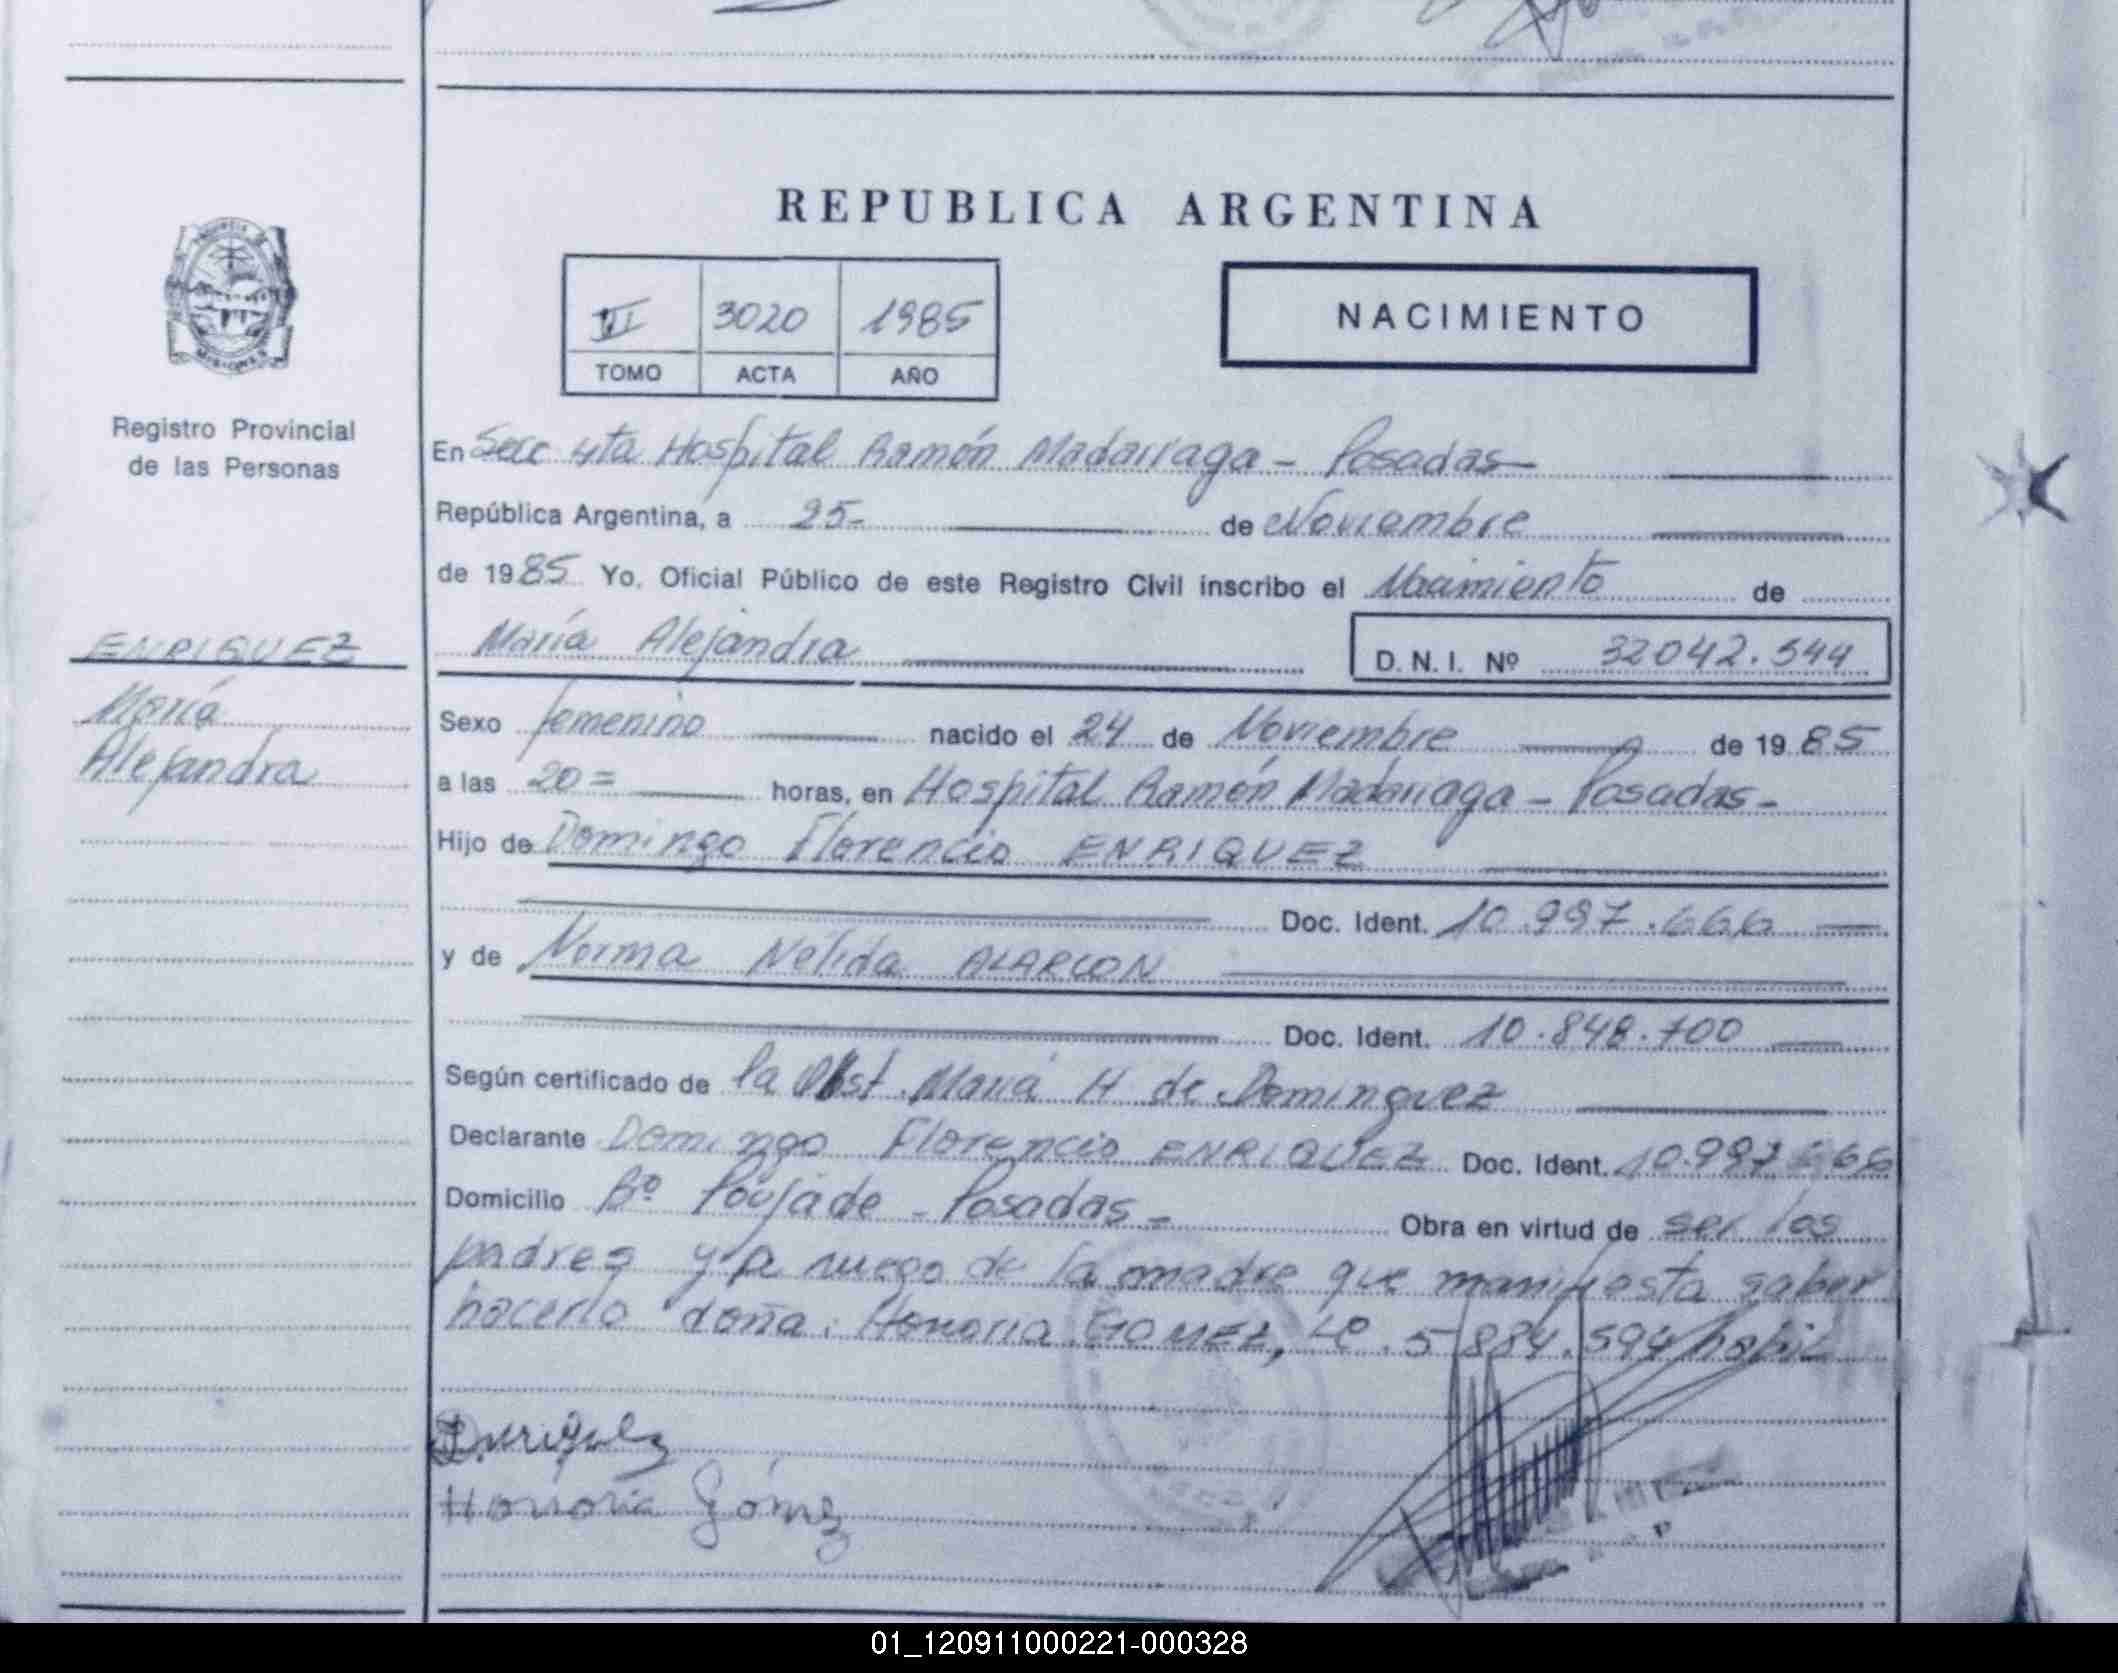 REPUBLICA ARGENTINA
VI 3020 1985
TOMO ACTA AÑO
NACIMIENTO
Registro Provincial
de las Personas
ENRIQUEZ
María
Alejandra
En Secc 4ta Hospital Ramón Madariaga - Posadas
República Argentina, a 25- de Noviembre
de 1985 Yo, Oficial Público de este Registro Civil inscribo el Nacimiento de
María Alejandra D.N.I. Nº 32042.544
Sexo femenino nacido el 24 de Noviembre de 1985
a las 20= horas, en Hospital Ramón Madariaga - Posadas-
Hijo de Domingo Florencio ENRIQUEZ
Doc. Ident. 10.997.666
y de Norma Nélida ALARCON
Doc. Ident. 10.848.700
Según certificado de la Obst. María H de Dominguez
Declarante Domingo Florencio ENRIQUEZ Doc. Ident. 10.997.666
Domicilio Bº Poujade - Posadas - Obra en virtud de ser los
padres y a ruego de la madre que manifiesta saber
hacerlo doña: Honoria GOMEZ, LC. 5.884.594 habil
Enriquez
Honoria Gómez
01_120911000221-000328